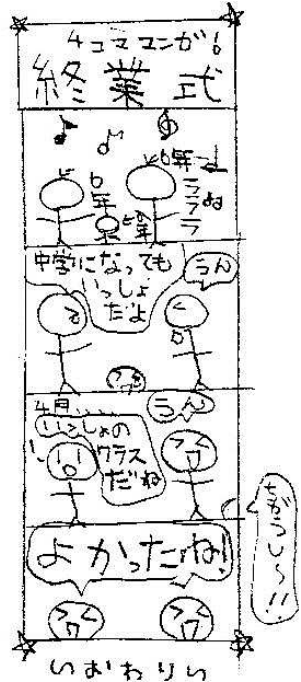 4コママンガ!
終業式
6年
6年
ラララ
中学になっても
いっしょ
だよ
うん
4月……
いっしょの
クラス
だね
うん
よかったね!
ちがうし〜!!
いおわりい